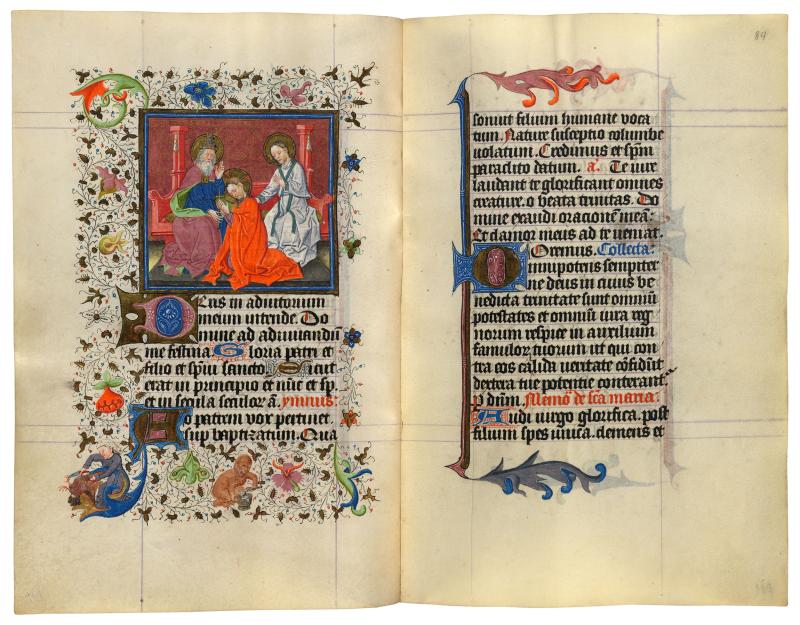 Eus in adiutorium
meum intende. Do
mine ad adiuuandū
me festina. Gloria patri et
filio et spūi sancto. Sicut
erat in principio et nūc et sp̄.
et in secula seculor̄ a. ymnus:
Ao patrem vox pertinet.
sup baptizatum. Qua
84
sonuit filium humane voca
tum. Nature susceptio columbe
uolatum. Credimus et sp̄m
paraclito datum. a. Te iure
laudant te glorificant omnes
creature. o beata trinitas. Do
mine exaudi oracionē meā:
Et clamor meus ad te veniat.
Oremus. Collecta:
Omnipotens sempiter
ne deus in cuius be
nedicta trinitate sunt omniū
potestates et omniū iura reg
norum respice in auxilium
famulor̄ tuorum ut qui con
tra eos calida uertate cōfidūt
dextera tue potencie conterant.
p dūm. Memō de scā maria:
Audi uirgo glorifica. post
filium spes unica. clemens et